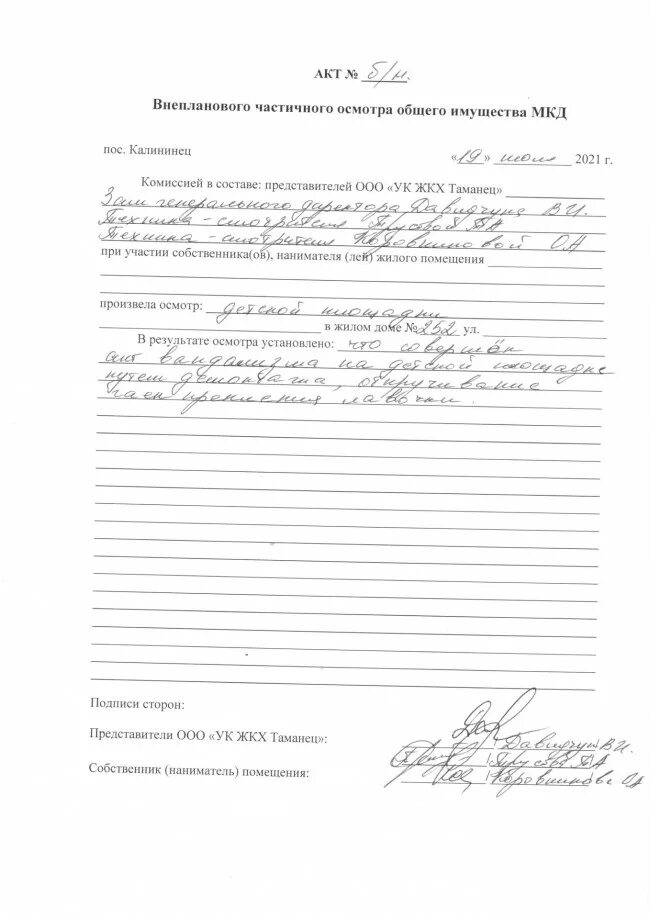 АКТ № б/н.
Внепланового частичного осмотра общего имущества МКД
пос. Калининец «19» июля 2021 г.
Комиссией в составе: представителей ООО «УК ЖКХ Таманец»
Зам генерального директора Давидчука В.И.
Техника-смотрителя ТА
Техника-смотрителя Коровниковой ОА
при участии собственника(ов), нанимателя (лей) жилого помещения
произвела осмотр: детской площадки
в жилом доме № 252 ул.
В результате осмотра установлено: что совершён
акт вандализма на детской площадке
путем демонтажа, откручивание
гаек крепления лавочки.
Подписи сторон:
Представители ООО «УК ЖКХ Таманец»: Давидчук В.И.
ТА
Собственник (наниматель) помещения: Коровникова ОА